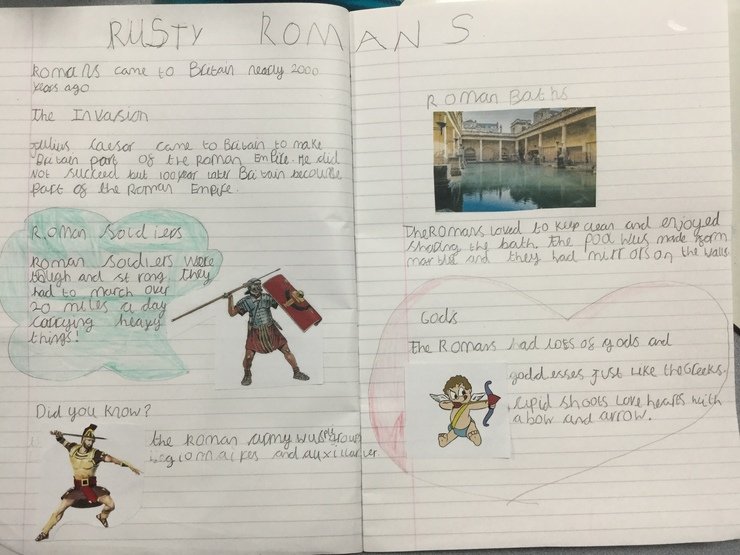 RUSTY ROMANS
Romans came to Britain nearly 2000
years ago
The Invasion
Julius Caesar came to Britain to make
Britain part of the Roman Empire. He did
not succeed but 100 year later Britain become
part of the Roman Empire.
Roman Soldiers
Roman soldiers were
tough and strong. They
had to march over
20 miles a day
carrying heavy
things!
Did you know?
the Roman army was
legionnaires and
Roman Baths
The Romans loved to keep clean and enjoyed
the bath. The pool was made form
marble and they had mirrors on the walls.
Gods
The Romans had lots of gods and
goddesses just like the Greeks.
Cupid shoots love hearts with
a bow and arrow.